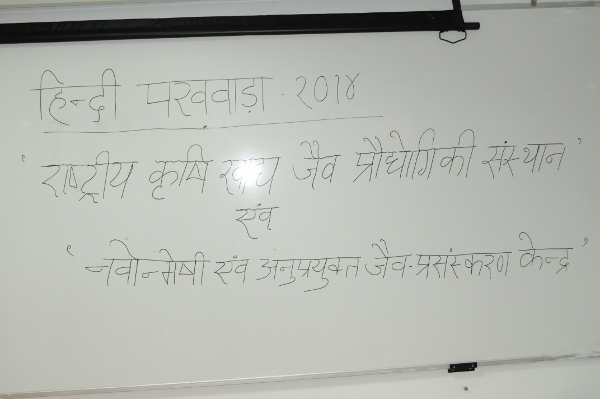 हिन्दी पखवाड़ा २०१४
'राष्ट्रीय कृषि खाद्य जैव प्रौद्योगिकी संस्थान'
एंव
'नवोन्मेषी एंव अनुप्रयुक्त जैव-प्रसंस्करण केन्द्र'